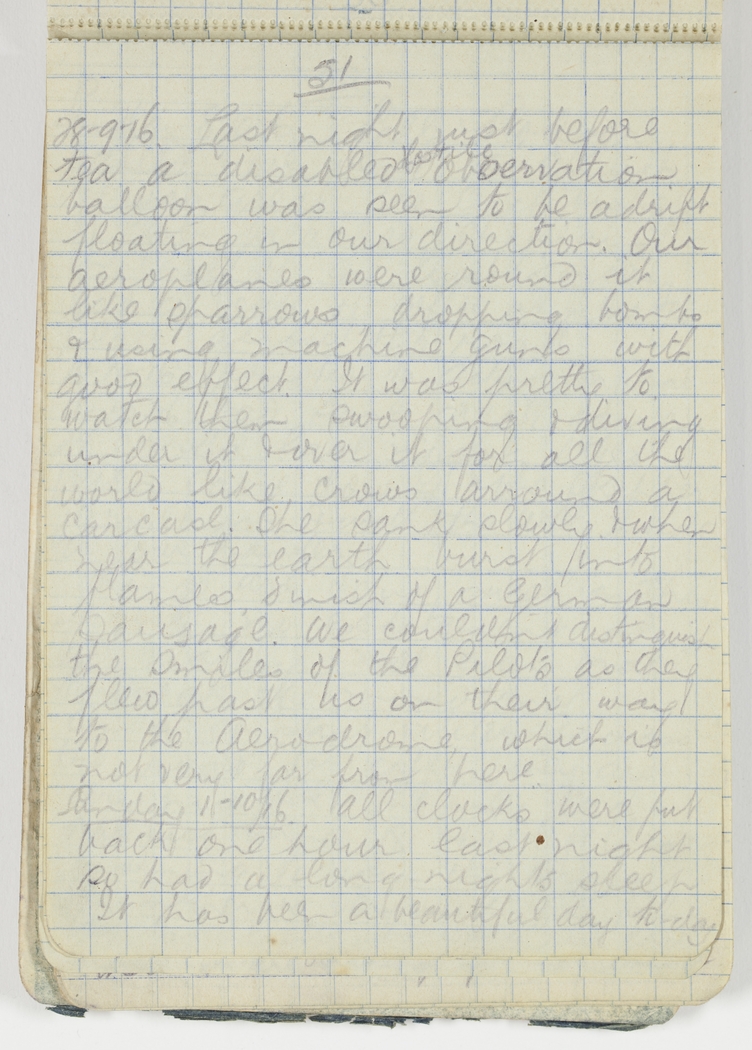 31
28-9-16. Last night just before
tea a disabled hostile observation
balloon was seen to be adrift
floating in our direction. Our
aeroplanes were round it
like sparrows dropping bombs
& using machine guns with
good effect. It was pretty to
watch them swooping & diving
under it & over it for all the
world like crows arround a
carcase. She sank slowly & when
near the earth burst into
flames, finish of a German
Sausage. We couldn't distinguish
the smiles of the Pilots as they
flew past us on their way
to the Aerodrome, which is
not very far from here
Sunday 1-10-16. all clocks were put
back one hour last night
so had a long nights sleep
It has been a beautiful day to-day